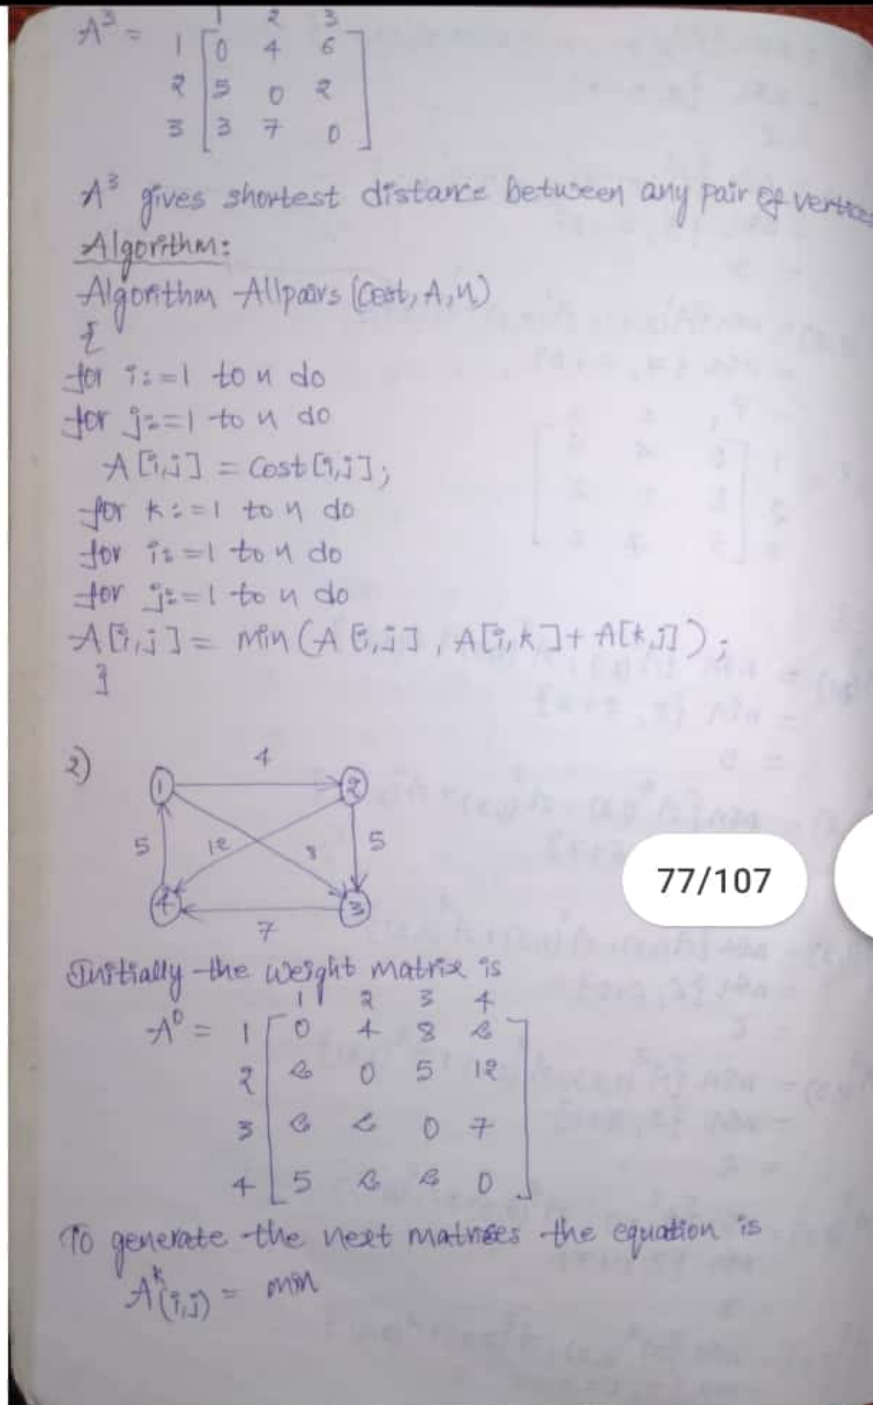 1 2 3
A³ = 1 0 4 6
2 5 0 2
3 3 7 0
A³ gives shortest distance between any pair of vertices
Algorithm:
Algorithm Allpairs (Cost, A, n)
{
for i:=1 to n do
for j:=1 to n do
A[i,j] = Cost[i,j];
for k:=1 to n do
for i:=1 to n do
for j:=1 to n do
A[i,j] = min(A[i,j], A[i,k]+ A[k,j]);
}
2)
4
1 2
5 12 8 5
4 3
7
77/107
Initially the weight matrix is
1 2 3 4
A⁰ = 1 0 4 8 ∞
2 ∞ 0 5 12
3 ∞ ∞ 0 7
4 5 ∞ ∞ 0
To generate the next matrices the equation is
Aᵏ(i,j) = min